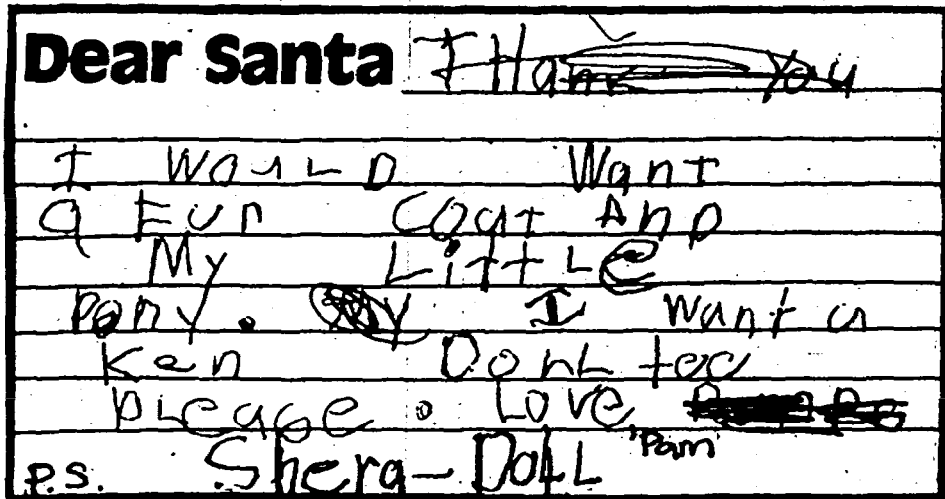 Dear Santa Thank You
I WOULD Want
a Fur COat AnD
My LittLe
Pony. I want a
Ken DOLL too
PLease. LOVE,
Pam
P.S. Shera-DOLL